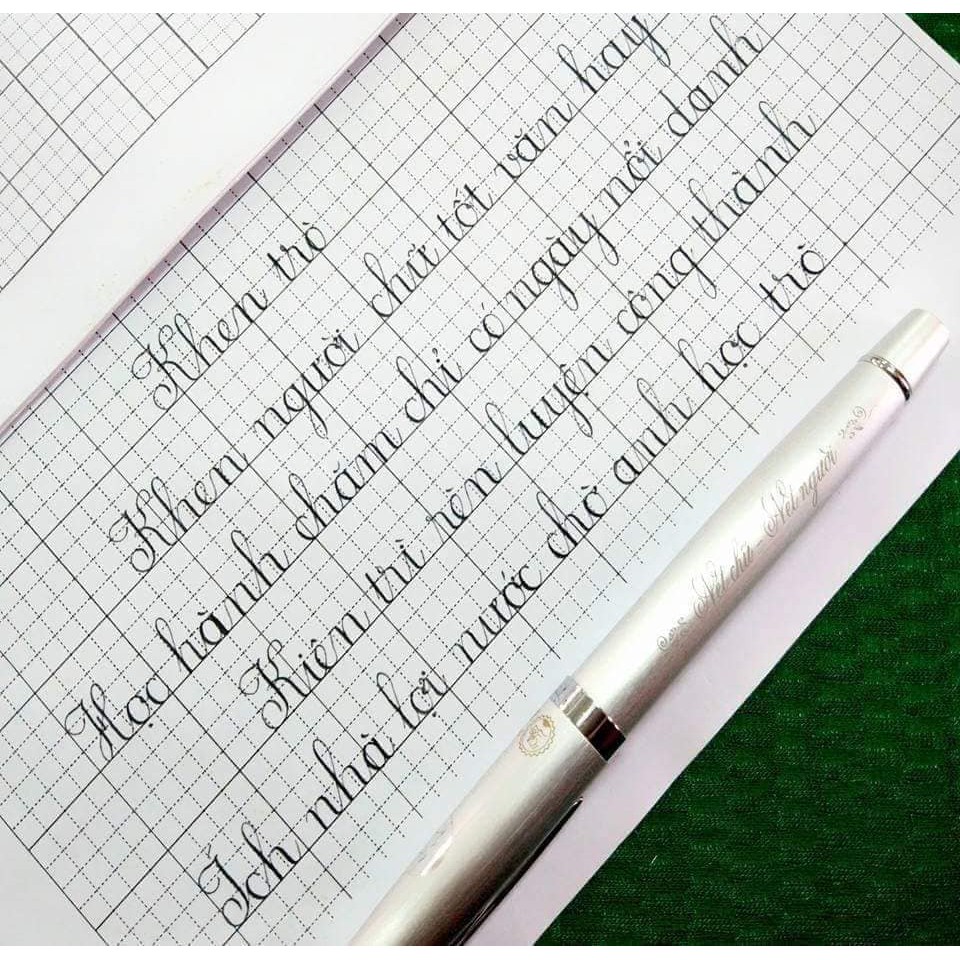 Khen trò
Khen ngươi chữ tốt văn hay
Học hành chăm chỉ có ngày nổi danh
Kiên trì rèn luyện công thành
Ích nhà lợi nước chờ anh học trò
Nét chữ - Nết người